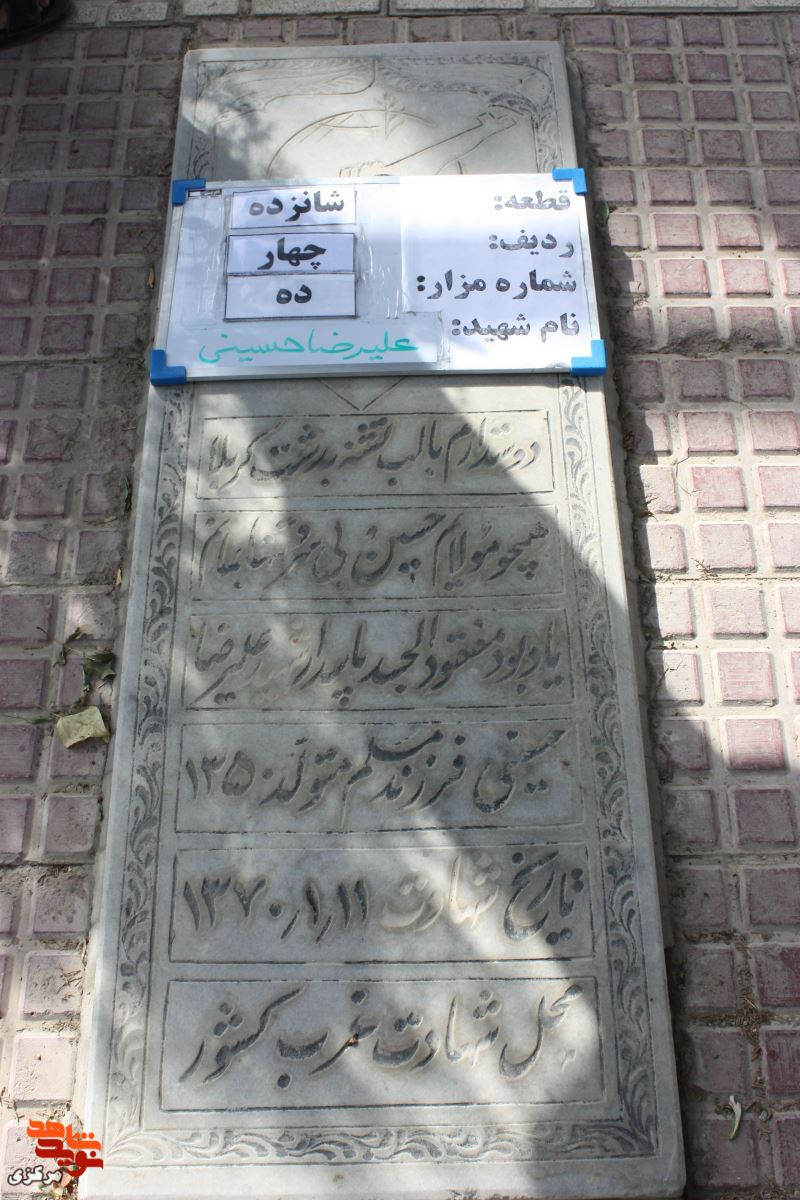 قطعه: شانزده
ردیف: چهار
شماره مزار: ده
نام شهید: علیرضا حسینی
دوستدارم با لب تشنه بدشت کربلا
همچو مولایم حسین بی سر و تنها بمانم
یادبود مفقودالجسد پاسدار سید علیرضا
حسینی فرزند مسلم متولد ۱۳۵۰
تاریخ شهادت ۱۳۷۰/۱/۱۱
محل شهادت غرب کشور
نوید شاهد
مرکزی